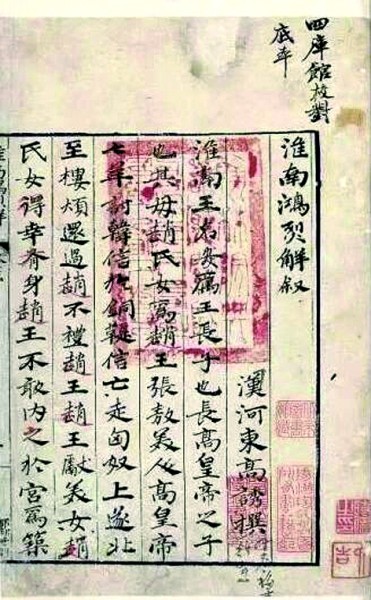 四庫館校對
底本
淮南鴻烈解叙
漢河東高誘撰
淮南王名安厲王長子也長高皇帝之子
也其母趙氏女爲趙王張敖美人高皇帝
七年討韓信於銅鞮信亡走匈奴上遂北
至樓煩還過趙不禮趙王趙王獻美女趙
氏女得幸有身趙王不敢内之於宮爲築